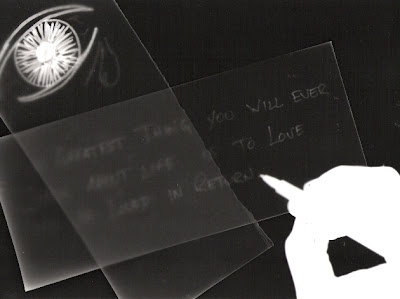 GREATEST THING YOU WILL EVER
LIFE IS TO LOVE
LOVED IN RETURN